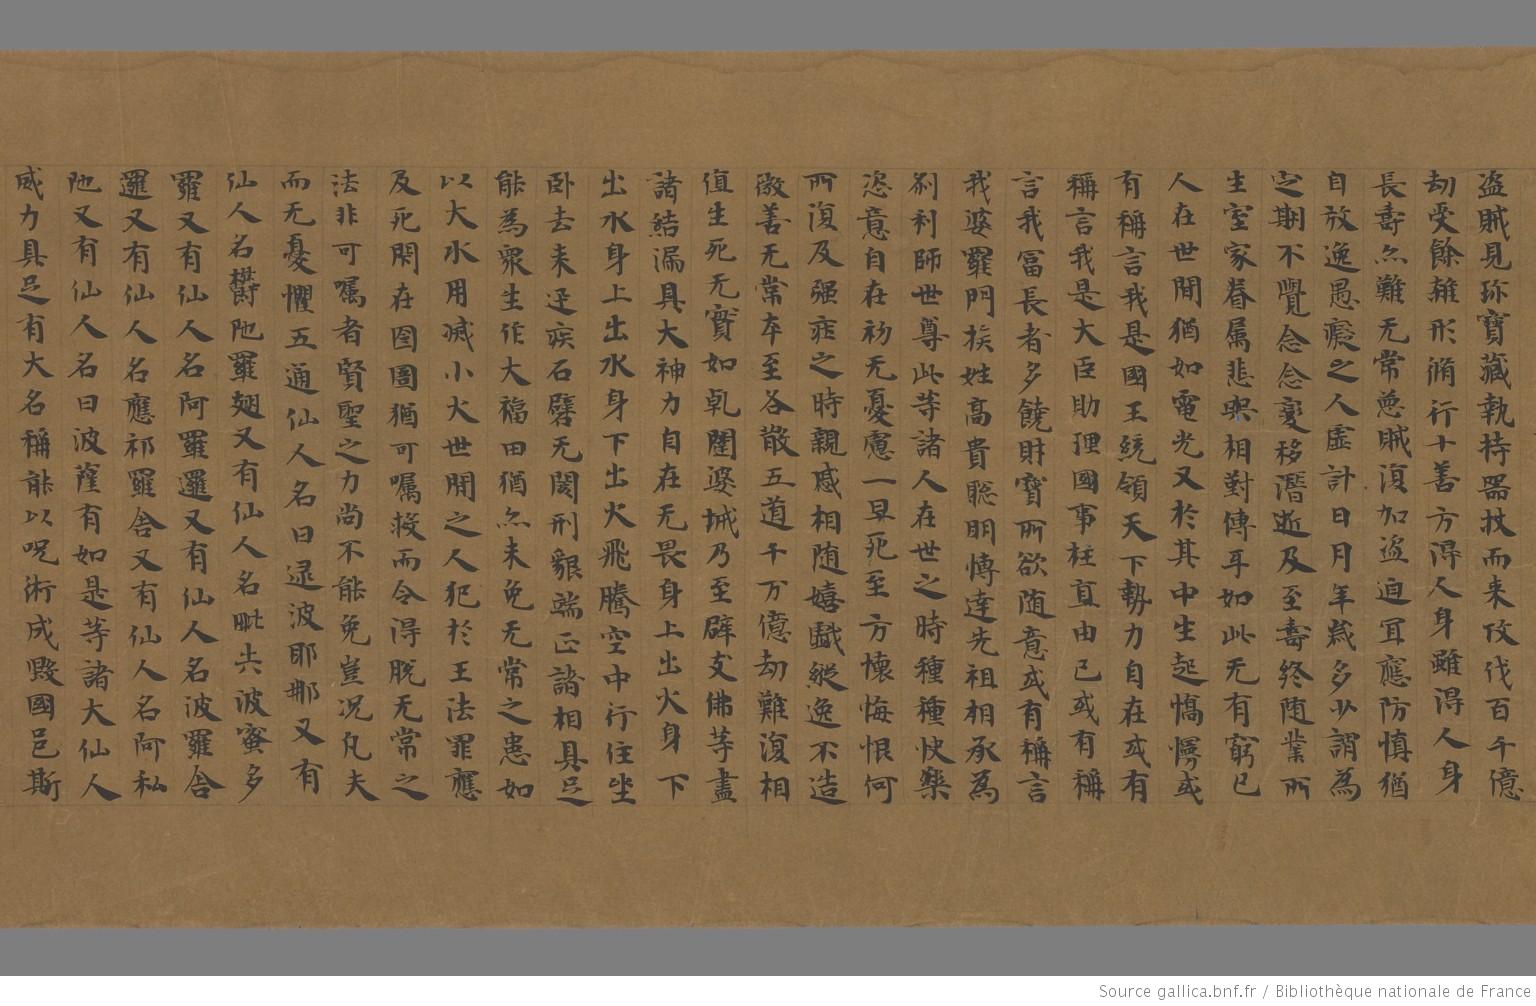 盜賊見珎寶藏執持器杖而来侵伐百千億
劫受餘雜形脩行十善方得人身雖得人身
長壽亦難无常惡賊復加盜迫冝應防慎猶
自放逸愚癡之人虛計日月年歲多少謂為
定期不覺念念變移潛逝及至壽終随業所
生室家眷属悲興相對傳耳如此无有窮已
人在世間猶如電光又於其中生起憍慢或
有稱言我是國王統領天下勢力自在或有
稱言我是大臣助理國事枉直由己或有稱
言我冨長者多饒財寶所欲随意或有稱言
我婆羅門族姓高貴聡明博達先祖相承為
剎利師世尊此等諸人在世之時種種快樂
恣意自在初无憂慮一旦死至方懷悔恨何
所復及强症之時親慼相随嬉戲縱逸不造
微善无常卒至各散五道千万億劫難復相
值生死无實如乹闥婆城乃至辟支佛等盡
諸結漏具大神力自在无畏身上出火身下
出水身上出水身下出火飛騰空中行住坐
卧去来迅疾石礕无閡刑貇端正諸相具足
能為衆生作大福田猶亦未免无常之患如
以大水用滅小火世間之人犯於王法罪應
及死閇在囹圄猶可囑救而令得脱无常之
法非可囑者賢聖之力尚不能免豈况凡夫
而无憂懼五通仙人名曰逯波耶那又有
仙人名欝陁羅翅又有仙人名毗失波蜜多
羅又有仙人名阿羅邏又有仙人名波羅舎
邏又有仙人名應祁羅舎又有仙人名阿私
陁又有仙人名曰波薩有如是等諸大仙人
威力具足有大名稱能以呪術成毀國邑斯